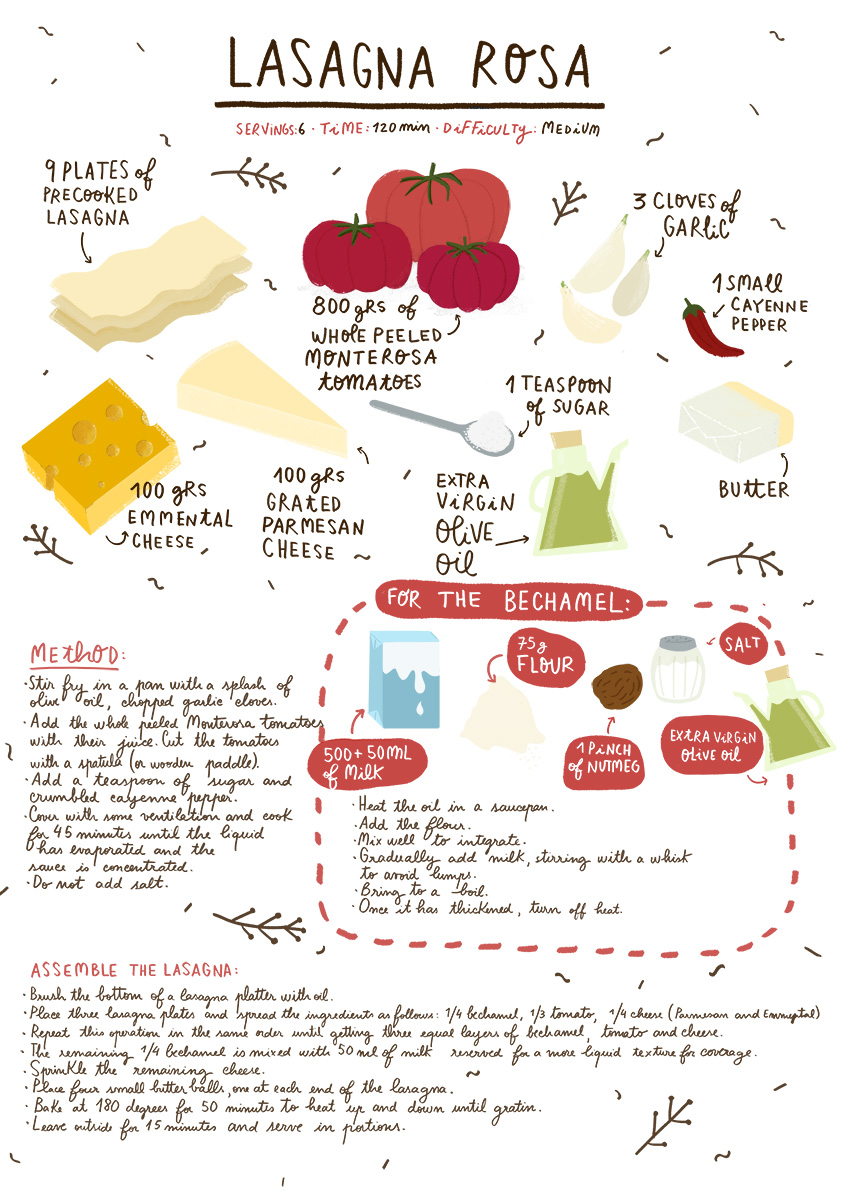 LASAGNA ROSA
SERVINGS:6 · TIME: 120 min · DIFFICULTY: MEDIUM
9 PLATES of
PRECOOKED
LASAGNA
800 gRS of
WHOLE PEELED
MONTEROSA
TOMATOES
3 CLOVES of
GARLIC
1 SMALL
CAYENNE
PEPPER
100 gRS
EMMENTAL
CHEESE
100 gRS
GRATED
PARMESAN
CHEESE
1 TEASPOON
of SUGAR
EXTRA
VIRGIN
OLIVE
OIL
BUTTER
METHOD:
· Stir fry in a pan with a splash of
olive oil, chopped garlic cloves.
· Add the whole peeled Monterosa tomatoes
with their juice. Cut the tomatoes
with a spatula (or wooden paddle).
· Add a teaspoon of sugar and
crumbled cayenne pepper.
· Cover with some ventilation and cook
for 45 minutes until the liquid
has evaporated and the
sauce is concentrated.
· Do not add salt.
FOR THE BECHAMEL:
500 + 50 ML
of MILK
75 g
FLOUR
1 PINCH
of NUTMEG
SALT
EXTRA VIRGIN
OLIVE OIL
· Heat the oil in a saucepan.
· Add the flour.
· Mix well to integrate.
· Gradually add milk, stirring with a whisk
to avoid lumps.
· Bring to a boil.
· Once it has thickened, turn off heat.
ASSEMBLE THE LASAGNA:
· Brush the bottom of a lasagna platter with oil.
· Place three lasagna plates and spread the ingredients as follows: 1/4 bechamel, 1/3 tomato, 1/4 cheese (Parmesan and Emmental)
· Repeat this operation in the same order until getting three equal layers of bechamel, tomato and cheese.
· The remaining 1/4 bechamel is mixed with 50 ml of milk reserved for a more liquid texture for coverage.
· Sprinkle the remaining cheese.
· Place four small butter balls, one at each end of the lasagna.
· Bake at 180 degrees for 50 minutes to heat up and down until gratin.
· Leave outside for 15 minutes and serve in portions.